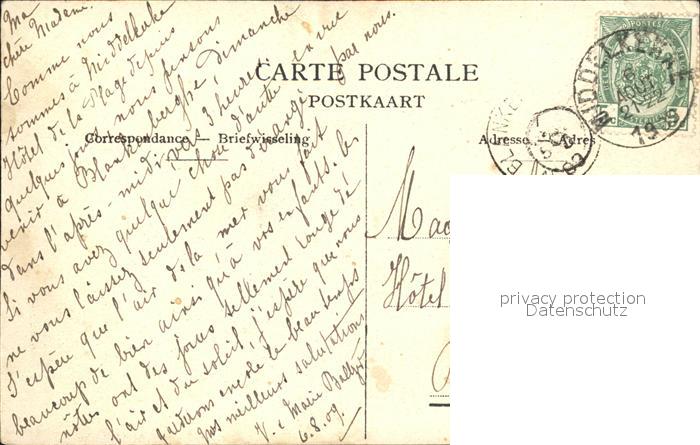 Ma
chère Madame.
Comme nous
sommes à Middelkerke
Hôtel de la Plage depuis
quelques jours nous pensons
venir à Blankenberghe, dimanche
dans l'après-midi vers 3 heures
Si vous avez quelque chose d'autre en vue
ne vous laissez seulement pas déranger par nous.
J'espère que l'air de la mer vous fait
beaucoup de bien ainsi qu'à vos enfants. les
nôtres ont des joues tellement rouges de
l'air et du soleil. j'espère que nous
garderons encore le beau temps
mes meilleurs salutations
V. e Marie
6.8.09.
CARTE POSTALE
POSTKAART
Correspondance — Briefwisseling
Adresse — Adres
POSTES
MIDDELKERKE
6
AOUT
21-22
1909
BLANKEN
Mad
Hôtel
privacy protection
Datenschutz